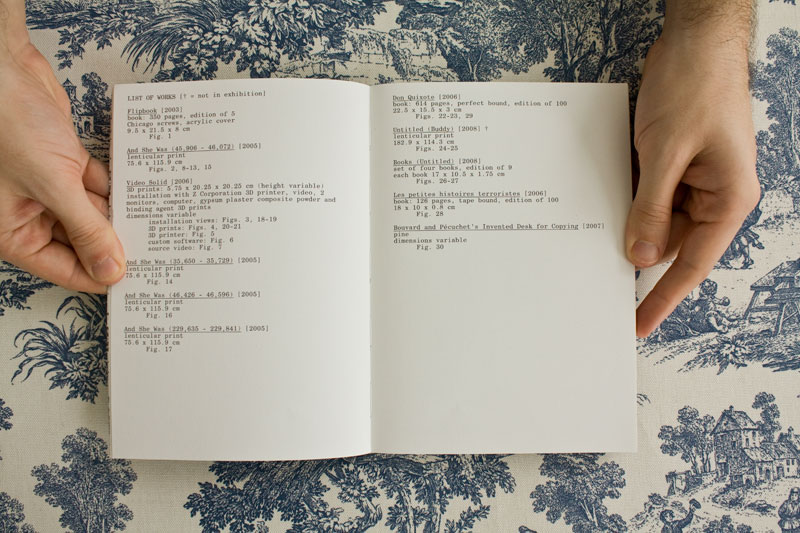 LIST OF WORKS [† = not in exhibition]
Flipbook [2003]
book: 350 pages, edition of 5
Chicago screws, acrylic cover
9.5 x 21.5 x 8 cm
Fig. 1
And She Was (45,908 - 46,072) [2005]
lenticular print
75.6 x 115.9 cm
Figs. 2, 8-13, 15
Video Solid [2006]
3D prints: 5.75 x 20.25 x 20.25 cm (height variable)
installation with Z Corporation 3D printer, video, 2
monitors, computer, gypsum plaster composite powder and
binding agent 3D prints
dimensions variable
installation views: Figs. 3, 18-19
3D prints: Figs. 4, 20-21
3D printer: Fig. 5
custom software: Fig. 6
source video: Fig. 7
And She Was (35,650 - 35,729) [2005]
lenticular print
75.6 x 115.9 cm
Fig. 14
And She Was (46,426 - 46,596) [2005]
lenticular print
75.6 x 115.9 cm
Fig. 16
And She Was (229,635 - 229,841) [2005]
lenticular print
75.6 x 115.9 cm
Fig. 17
Don Quixote [2006]
book: 614 pages, perfect bound, edition of 100
22.5 x 15.5 x 3 cm
Figs. 22-23, 29
Untitled (Buddy) [2008] †
lenticular print
182.9 x 114.3 cm
Figs. 24-25
Books (Untitled) [2008]
set of four books, edition of 9
each book 17 x 10.5 x 1.75 cm
Figs. 26-27
Les petites histoires terroristes [2006]
book: 126 pages, tape bound, edition of 100
18 x 10 x 0.8 cm
Fig. 28
Bouvard and Pécuchet's Invented Desk for Copying [2007]
pine
dimensions variable
Fig. 30